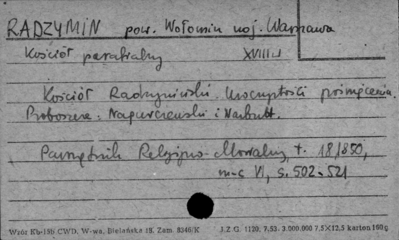 RADZYMIN pow. Wołomin woj. Warszawa
Kościół parafialny XVIII w
Kościół Radzymiński. Uroczystości poświęcenia.
Proboszcze: Naparczewski i Narbutt.
Pamiętnik Religijno-Moralny, t. 18/850,
m-c VI, s. 502-521
Wzór Kb-15b CWD. W-wa, Bielańska 18. Zam. 8346/K J.Z.G. 1120. 7.53. 3.000.000 7,5X12,5 karton 190g